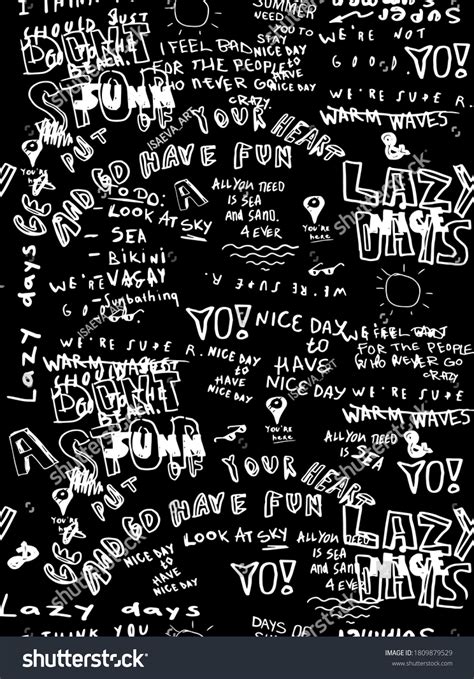 I THINK
SHOULD JUST
GO TO THE
BEACH.
DON'T
STOP
FUNN
SUMMER
NEED
YOU TO
STAY
NICE DAY
to
HAVE
NICE DAY
I FEEL BAD
FOR THE PEOPLE
WHO NEVER GO
CRAZY.
SUPER
SUMMER
WE'RE NOT
GOOD.
YO!
WE'RE SUPER
WARM WAVES
GET
PUT
OF YOUR HEART
AND GO HAVE FUN
ISAEVA_ART
&
LAZY
DAYS
NICE
You're
here
TO DO:
- LOOK AT SKY
- SEA
- Bikini
- VACAY
- Sunbathing
A
ALL YOU NEED
IS SEA
AND SAND.
4 EVER
You're
here
WE'RE SUPER.
Lazy days
YO!
NICE DAY
to
HAVE
NICE DAY
FOR THE PEOPLE
WHO NEVER GO
CRAZY
WE'RE SUPER
WARM WAVES
WE'RE SUPER.
WARM WAVES
SHOULD JUST
GO TO THE
BEACH.
DON'T
A STOP
FUNN
NICE DAY
to
HAVE
NICE DAY
ISAEVA_ART
You're
here
ALL YOU NEED
IS SEA
&
YO!
GET
PUT
OF YOUR HEART
AND GO HAVE FUN
You're
&
LOOK AT SKY
ALL YOU NEED
IS SEA
AND SAND.
4 EVER
LAZY
DAYS
NICE
NICE DAY
TO
HAVE
NICE DAY
YO!
Lazy days
I THINK YOU
ISAEVA_ART
DAYS OF
SUMMER
shutterstock
IMAGE ID: 1809879529
www.shutterstock.com